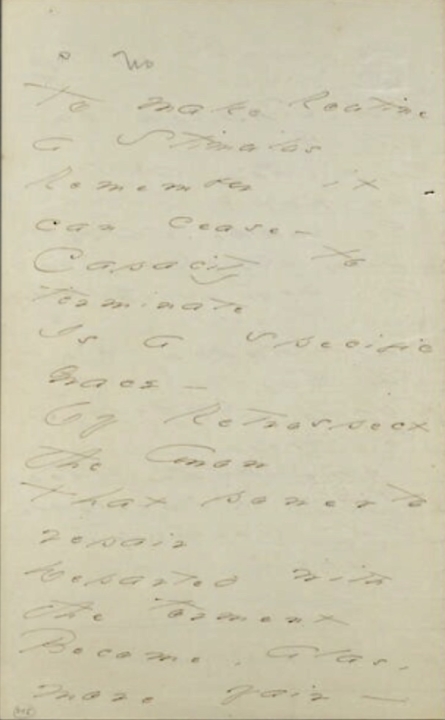 To make Routine
a Stimulus
Remember it
can cease –
Capacity to
terminate
Is a Specific
Grace –
Of Retrospect
the Arrow
That power to
repair
Departed with
the Torment
Become, Alas,
more fair –